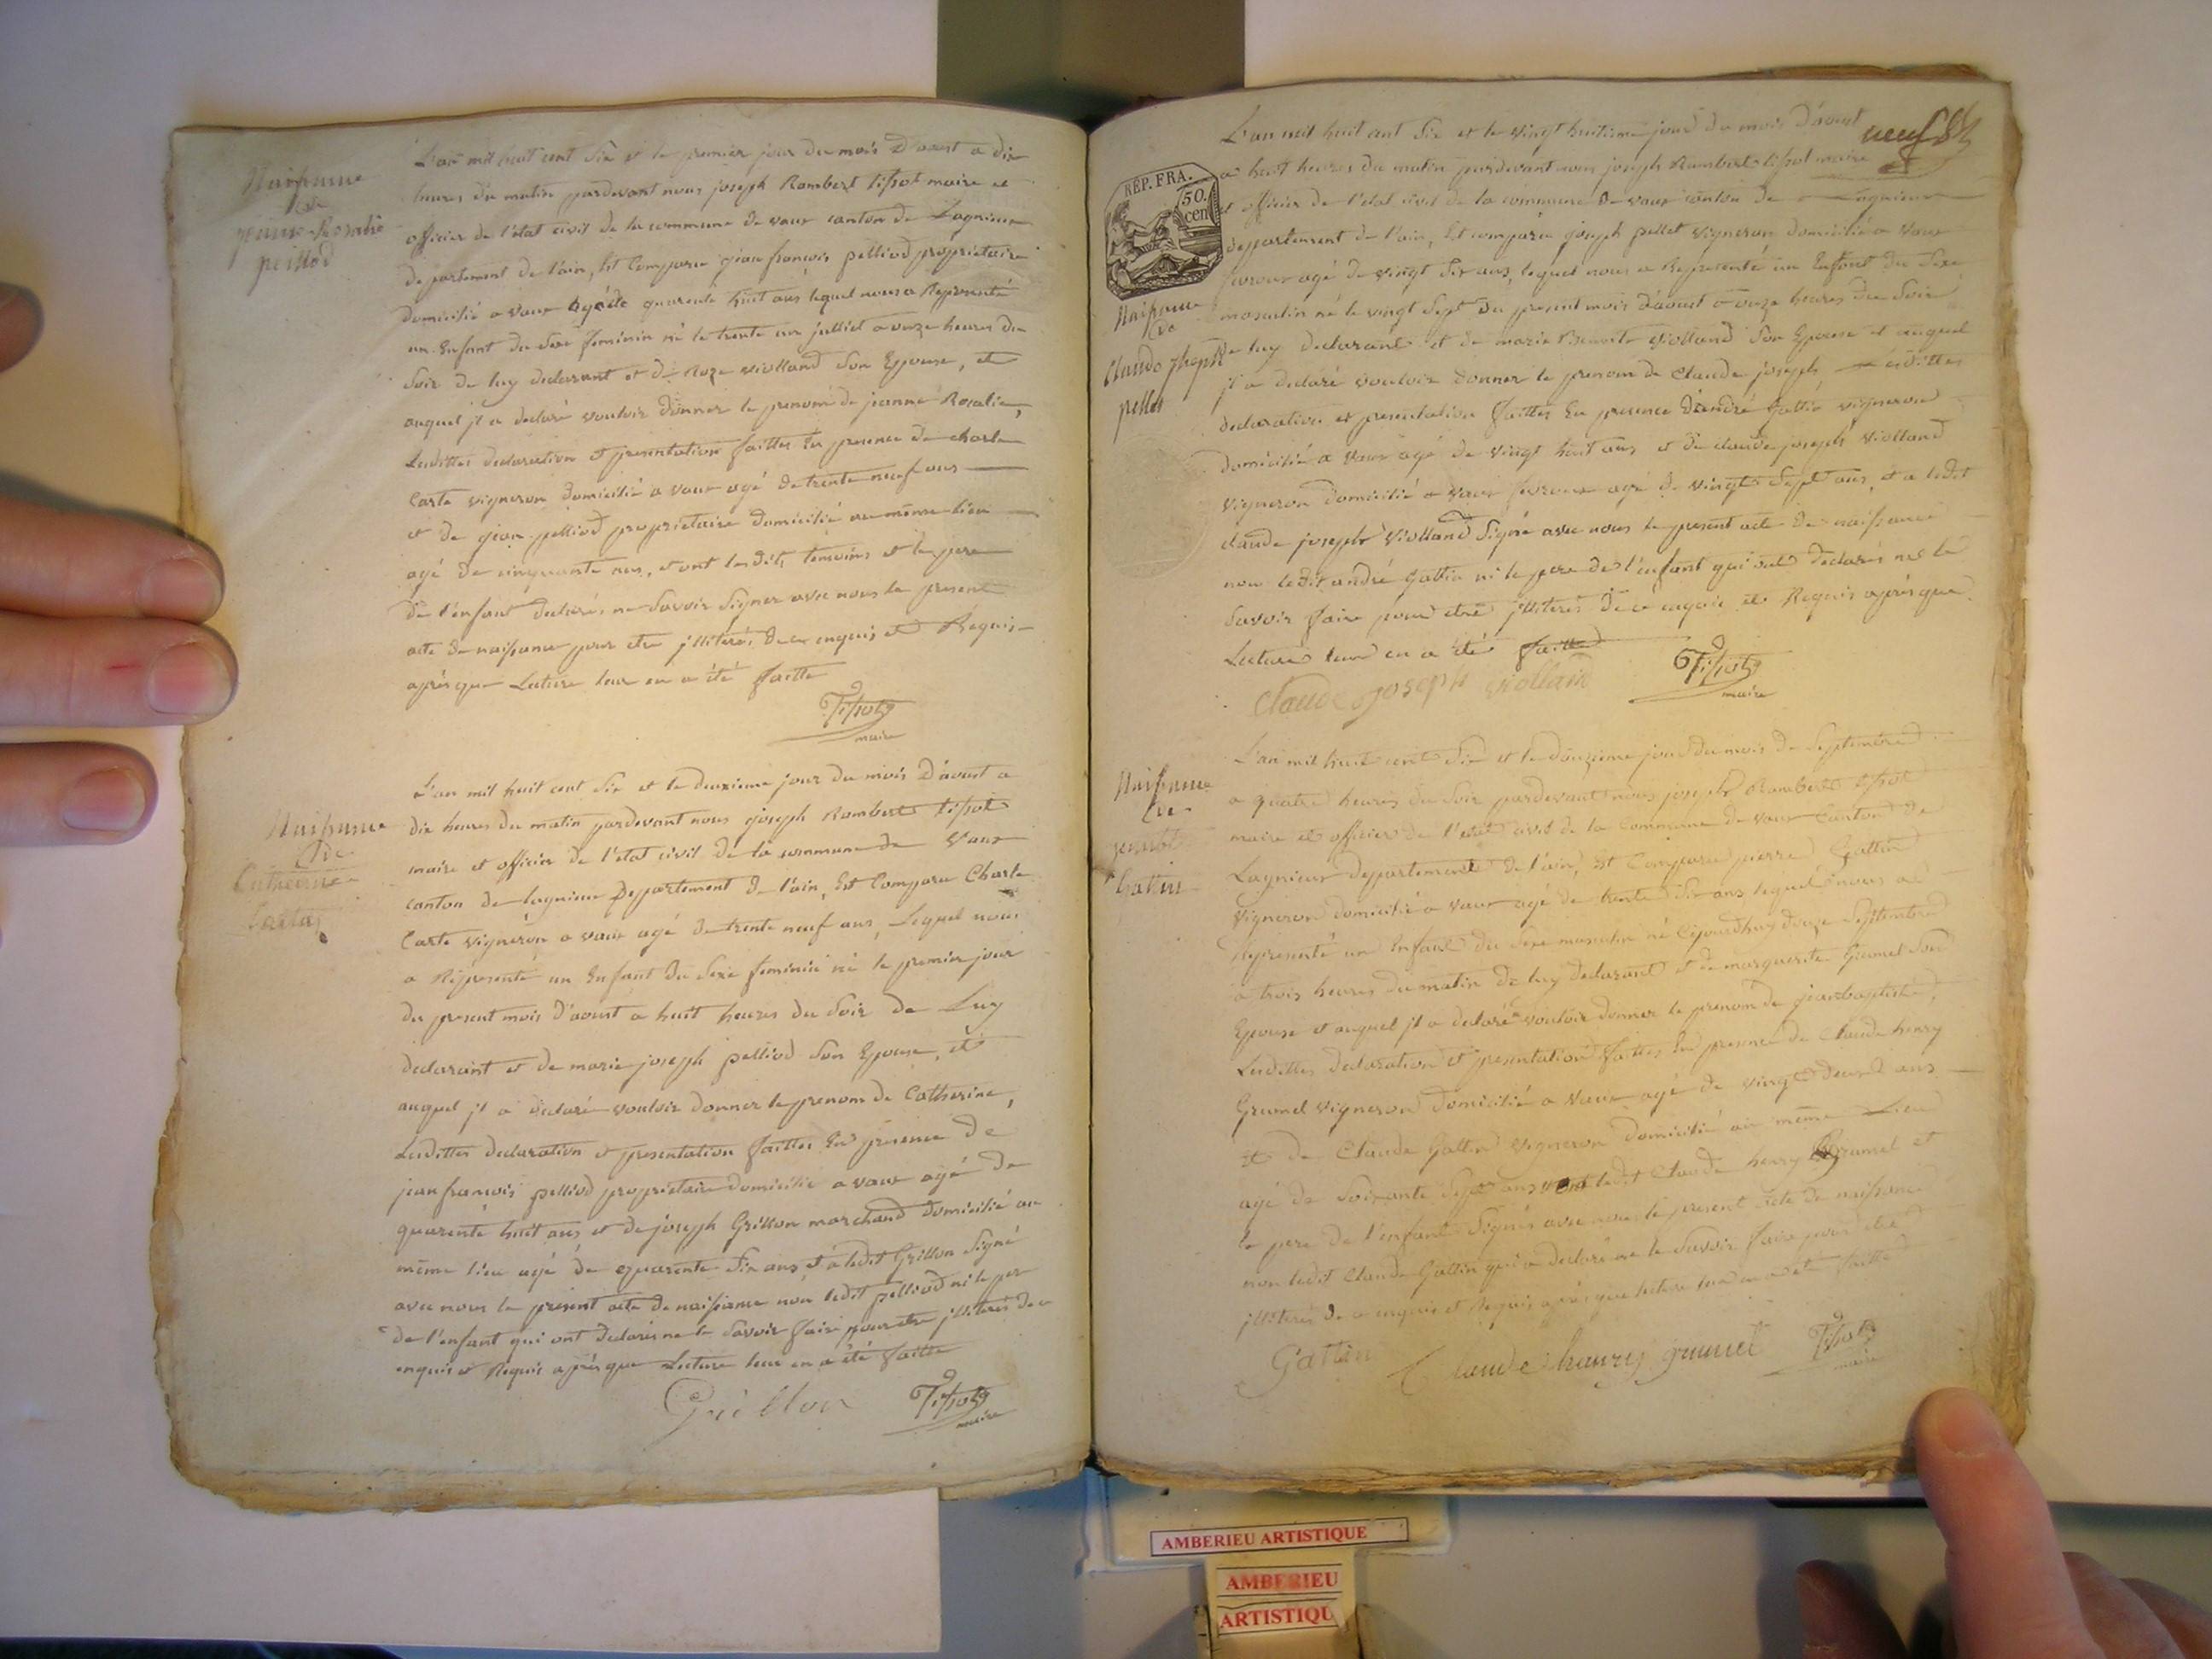 Naissance
de
jeanne Rosalie
pelliod
L'an mil huit cent six et le premier jour du mois D'aoust a dix
heures du matin pardevant nous joseph Rambert tissot maire et
officier de l'état civil de la commune de vaux canton de Lagnieux
departement de l'ain, Est Comparu jean françois pelliod propriétaire
domicilié a vaux agé de quarente huit ans lequel nous a Representé
un Enfant du Sexe feminin né le trente un julliet a onze heures du
Soir de luy declarant et de Roze violland Son Epouse, et
auquel jl a declaré vouloir donner le prenom de jeanne Rosalie,
Lesdittes declaration et presentation faittes En presence de charle
Carte vigneron domicilié a vaux agé de trente neuf ans
et de jean pelliod proprietaire domicilié au même lieu
agé de cinquante ans, et ont lesdits temoins et le pere
de l'enfant declarés ne Savoir Signer avec nous le present
acte de naissance pour etre jlliterés de ce enquis et Requis
aprés que Lecture leur en a été faitte
Tissot
maire
Naissance
de
Catherine
Carte
L'an mil huit cent Six et le deuxieme jour du mois D'aoust a
dix heures du matin pardevant nous joseph Rambert tissot
maire et officier de l'état civil de la commune de Vaux
canton de lagnieux Departement de l'ain, Est Comparu Charle
Carte vigneron a vaux agé de trente neuf ans, Lequel nous
a Representé un Enfant du Sexe feminin né le premier jour
du present mois d'aoust a huit heures du Soir de Luy
declarant et de marie joseph pelliod Son Epouse, et
auquel jl a declaré vouloir donner le prenom de Catherine,
Lesdittes declaration et presentation faittes En presence de
jean françois pelliod proprietaire domicilié a vaux agé de
quarente huit ans et de joseph Grillon marchand domicilié au
même lieu agé de quarente Six ans, et a ledit Grillon Signé
avec nous le present acte de naissance non ledit pelliod ni le per
de l'enfant qui ont declarés ne le Savoir faire pour etre jlliterés de ce
enquis et Requis aprés que Lecture leur en a été faitte
Grillon
Tissot
maire
neuf
RÉP. FRA.
50
cen
Naissance
de
Claude joseph
pellet
L'an mil huit cent Six et le vingt huitieme jour du mois D'aoust
a huit heures du matin pardevant nous joseph Rambert tissot maire
et officier de l'état civil de la commune de vaux canton de Lagnieux
departement de l'ain, Est comparu joseph pellet vigneron domicilié a vaux
agé de vingt Six ans, lequel nous a Representé un Enfant du Sexe
masculin né le vingt Sept du present mois d'aoust a onze heures du Soir
de luy declarant et de marie Benoite violland Son Epouse et auquel
jl a declaré vouloir donner le prenom de Claude joseph, Lesdittes
declaration et presentation faittes En presence D'andré Gattin vigneron
domicilié a vaux agé de vingt huit ans et de claude joseph violland
vigneron domicilié a vaux agé de vingt Sept ans, et a ledit
claude joseph violland Signé avec nous le present acte de naissance
non ledit andré Gattin ni le pere de l'enfant qui ont declarés ne le
Savoir faire pour etre jlliterés de ce enquis et Requis aprés que
Lecture leur en a été faitte
Claude joseph violland
Tissot
maire
Naissance
de
Gattin
L'an mil huit cent Six et le douzieme jour du mois de Septembre
a quatre heures du Soir pardevant nous joseph Rambert tissot
maire et officier de l'état civil de la Commune de vaux Canton de
Lagnieux departement de l'ain, Est Comparu pierre Gattin
Vigneron domicilié a vaux agé de trente Six ans lequel nous a
Representé un Enfant du Sexe masculin né cejourdhuy douze Septembre
a trois heures du matin de luy declarant et de marguerite Grumel Son
Epouse et auquel jl a declaré vouloir donner le prenom de jeanbaptiste,
Lesdittes declaration et presentation faittes En presence de Claude henry
Grumel vigneron domicilié a vaux agé de vingt deux ans
et de Claude Gattin vigneron domicilié au même Lieu
agé de Soixante Sept ans ont ledit Claude henry Grumel et
le pere de l'enfant Signés avec nous le present acte de naissance
non ledit Claude Gattin qui a declaré ne le Savoir faire pour etre
jlliterés de ce enquis et Requis aprés que lecture leur en a été faitte
Gattin
Claude henry grumel
Tissot
maire
AMBERIEU ARTISTIQUE
AMBERIEU
ARTISTIQU